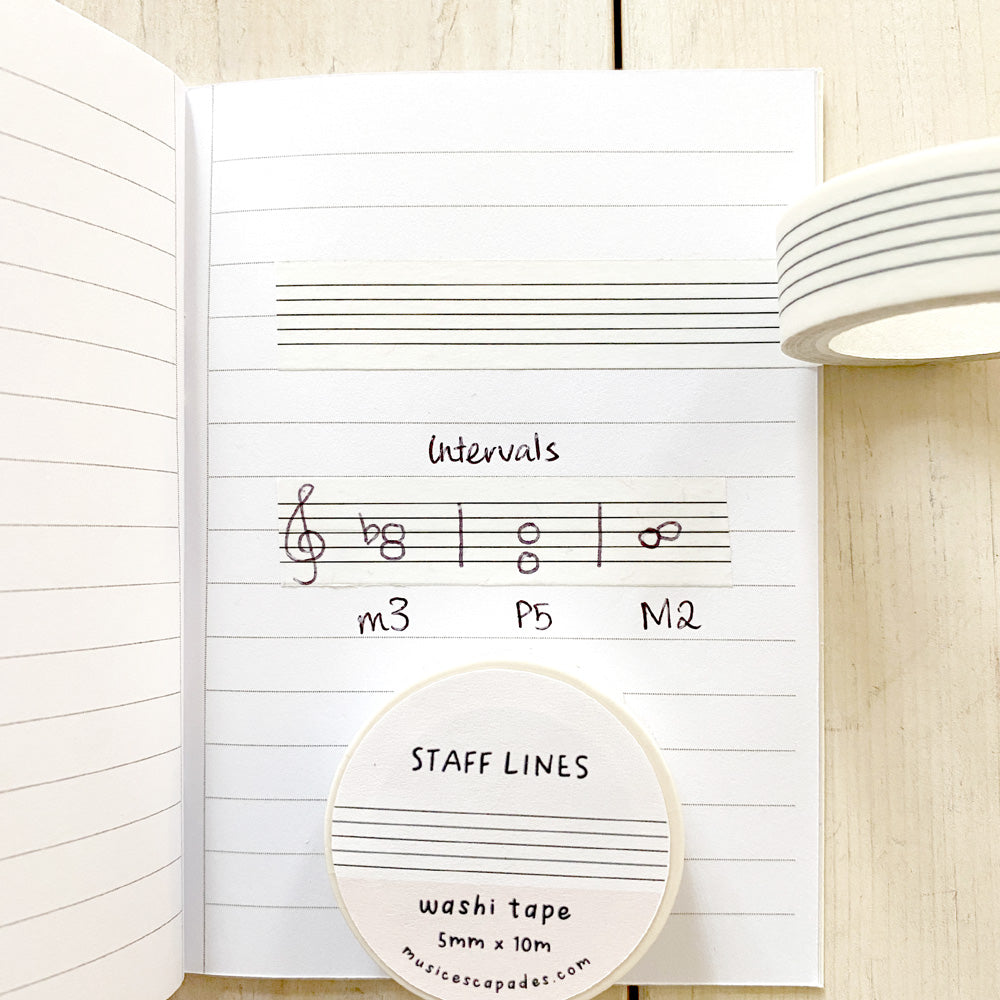 Intervals
m3 P5 M2
STAFF LINES
washi tape
5mm x 10m
musicescapades.com